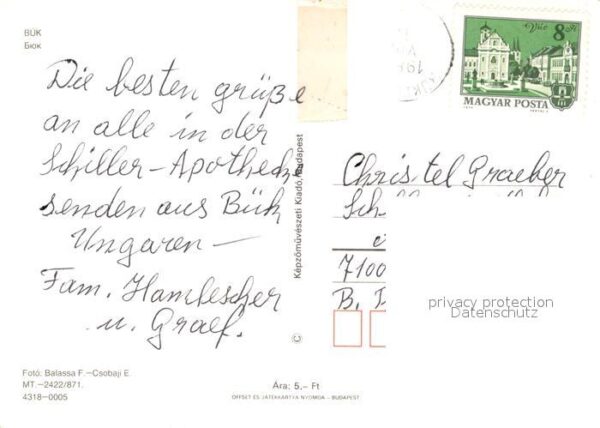 BÜK
Бюк
Die besten grüße
an alle in der
Schiller-Apotheck
senden aus Bük
Ungaren —
Fam. Hamlescher
u. Graef.
Fotó: Balassa F.—Csobaji E.
MT.—2422/871.
4318—0005
Képzőművészeti Kiadó, Budapest
©
Ára: 5,— Ft
OFFSET ÉS JÁTÉKKÁRTYA NYOMDA — BUDAPEST
Vác 8 Ft
MAGYAR POSTA
Christel Graeber
7100
B.
privacy protection
Datenschutz